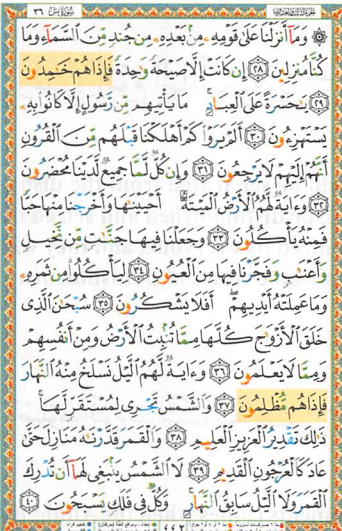 سورة يس ٣٦
۞ وَمَآ أَنزَلْنَا عَلَىٰ قَوْمِهِۦ مِنۢ بَعْدِهِۦ مِن جُندٍ مِّنَ ٱلسَّمَآءِ وَمَا
كُنَّا مُنزِلِينَ ﴿٢٨﴾ إِن كَانَتْ إِلَّا صَيْحَةً وَٰحِدَةً فَإِذَا هُمْ خَٰمِدُونَ
﴿٢٩﴾ يَٰحَسْرَةً عَلَى ٱلْعِبَادِ ۚ مَا يَأْتِيهِم مِّن رَّسُولٍ إِلَّا كَانُوا۟ بِهِۦ
يَسْتَهْزِءُونَ ﴿٣٠﴾ أَلَمْ يَرَوْا۟ كَمْ أَهْلَكْنَا قَبْلَهُم مِّنَ ٱلْقُرُونِ
أَنَّهُمْ إِلَيْهِمْ لَا يَرْجِعُونَ ﴿٣١﴾ وَإِن كُلٌّ لَّمَّا جَمِيعٌ لَّدَيْنَا مُحْضَرُونَ
﴿٣٢﴾ وَءَايَةٌ لَّهُمُ ٱلْأَرْضُ ٱلْمَيْتَةُ أَحْيَيْنَٰهَا وَأَخْرَجْنَا مِنْهَا حَبًّا
فَمِنْهُ يَأْكُلُونَ ﴿٣٣﴾ وَجَعَلْنَا فِيهَا جَنَّٰتٍ مِّن نَّخِيلٍ
وَأَعْنَٰبٍ وَفَجَّرْنَا فِيهَا مِنَ ٱلْعُيُونِ ﴿٣٤﴾ لِيَأْكُلُوا۟ مِن ثَمَرِهِۦ
وَمَا عَمِلَتْهُ أَيْدِيهِمْ ۖ أَفَلَا يَشْكُرُونَ ﴿٣٥﴾ سُبْحَٰنَ ٱلَّذِى
خَلَقَ ٱلْأَزْوَٰجَ كُلَّهَا مِمَّا تُنۢبِتُ ٱلْأَرْضُ وَمِنْ أَنفُسِهِمْ
وَمِمَّا لَا يَعْلَمُونَ ﴿٣٦﴾ وَءَايَةٌ لَّهُمُ ٱلَّيْلُ نَسْلَخُ مِنْهُ ٱلنَّهَارَ
فَإِذَا هُم مُّظْلِمُونَ ﴿٣٧﴾ وَٱلشَّمْسُ تَجْرِى لِمُسْتَقَرٍّ لَّهَا ۚ
ذَٰلِكَ تَقْدِيرُ ٱلْعَزِيزِ ٱلْعَلِيمِ ﴿٣٨﴾ وَٱلْقَمَرَ قَدَّرْنَٰهُ مَنَازِلَ حَتَّىٰ
عَادَ كَٱلْعُرْجُونِ ٱلْقَدِيمِ ﴿٣٩﴾ لَا ٱلشَّمْسُ يَنۢبَغِى لَهَآ أَن تُدْرِكَ
ٱلْقَمَرَ وَلَا ٱلَّيْلُ سَابِقُ ٱلنَّهَارِ ۚ وَكُلٌّ فِى فَلَكٍ يَسْبَحُونَ ﴿٤٠﴾
٤٤٢